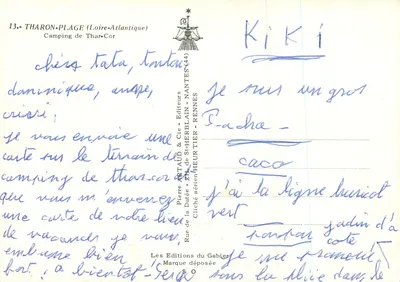 13.- THARON-PLAGE (Loire-Atlantique)
Camping de Thar-Cor
chers tata, tonton
dominique, 
je vous envoie une
carte sur le terrain de
camping de thar-cor
que vous m'envenez
une carte de votre lieu
de vacances je vous
embrasse bien
fort, a bientot
Pierre ARTAUD & Cie • Editeurs
Rue de la Dutée - Z.I.L. de St-HERBLAIN - NANTES (44)
Cliché aérien HEURTIER - RENNES
Les Editions du Gabier
Marque déposée
KiKi
je suis un gros
Pacha
caco
j'ai la ligne haricot
vert
jadin d'a
coté
je me 
sous la pluie dans le